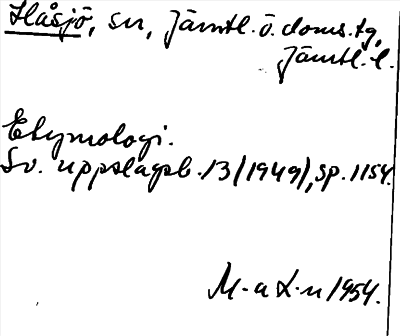 Håsjö, sn, Jämtl. ö. doms. tg,
Jämtl. l.
Etymologi.
Sv. uppslagsb. 13 (1949), sp. 1154.
M-a L-n 1954.